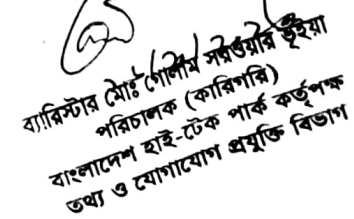 ব্যারিস্টার মোঃ গোলাম সরওয়ার ভূঁইয়া
পরিচালক (কারিগরি)
বাংলাদেশ হাই-টেক পার্ক কর্তৃপক্ষ
তথ্য ও যোগাযোগ প্রযুক্তি বিভাগ